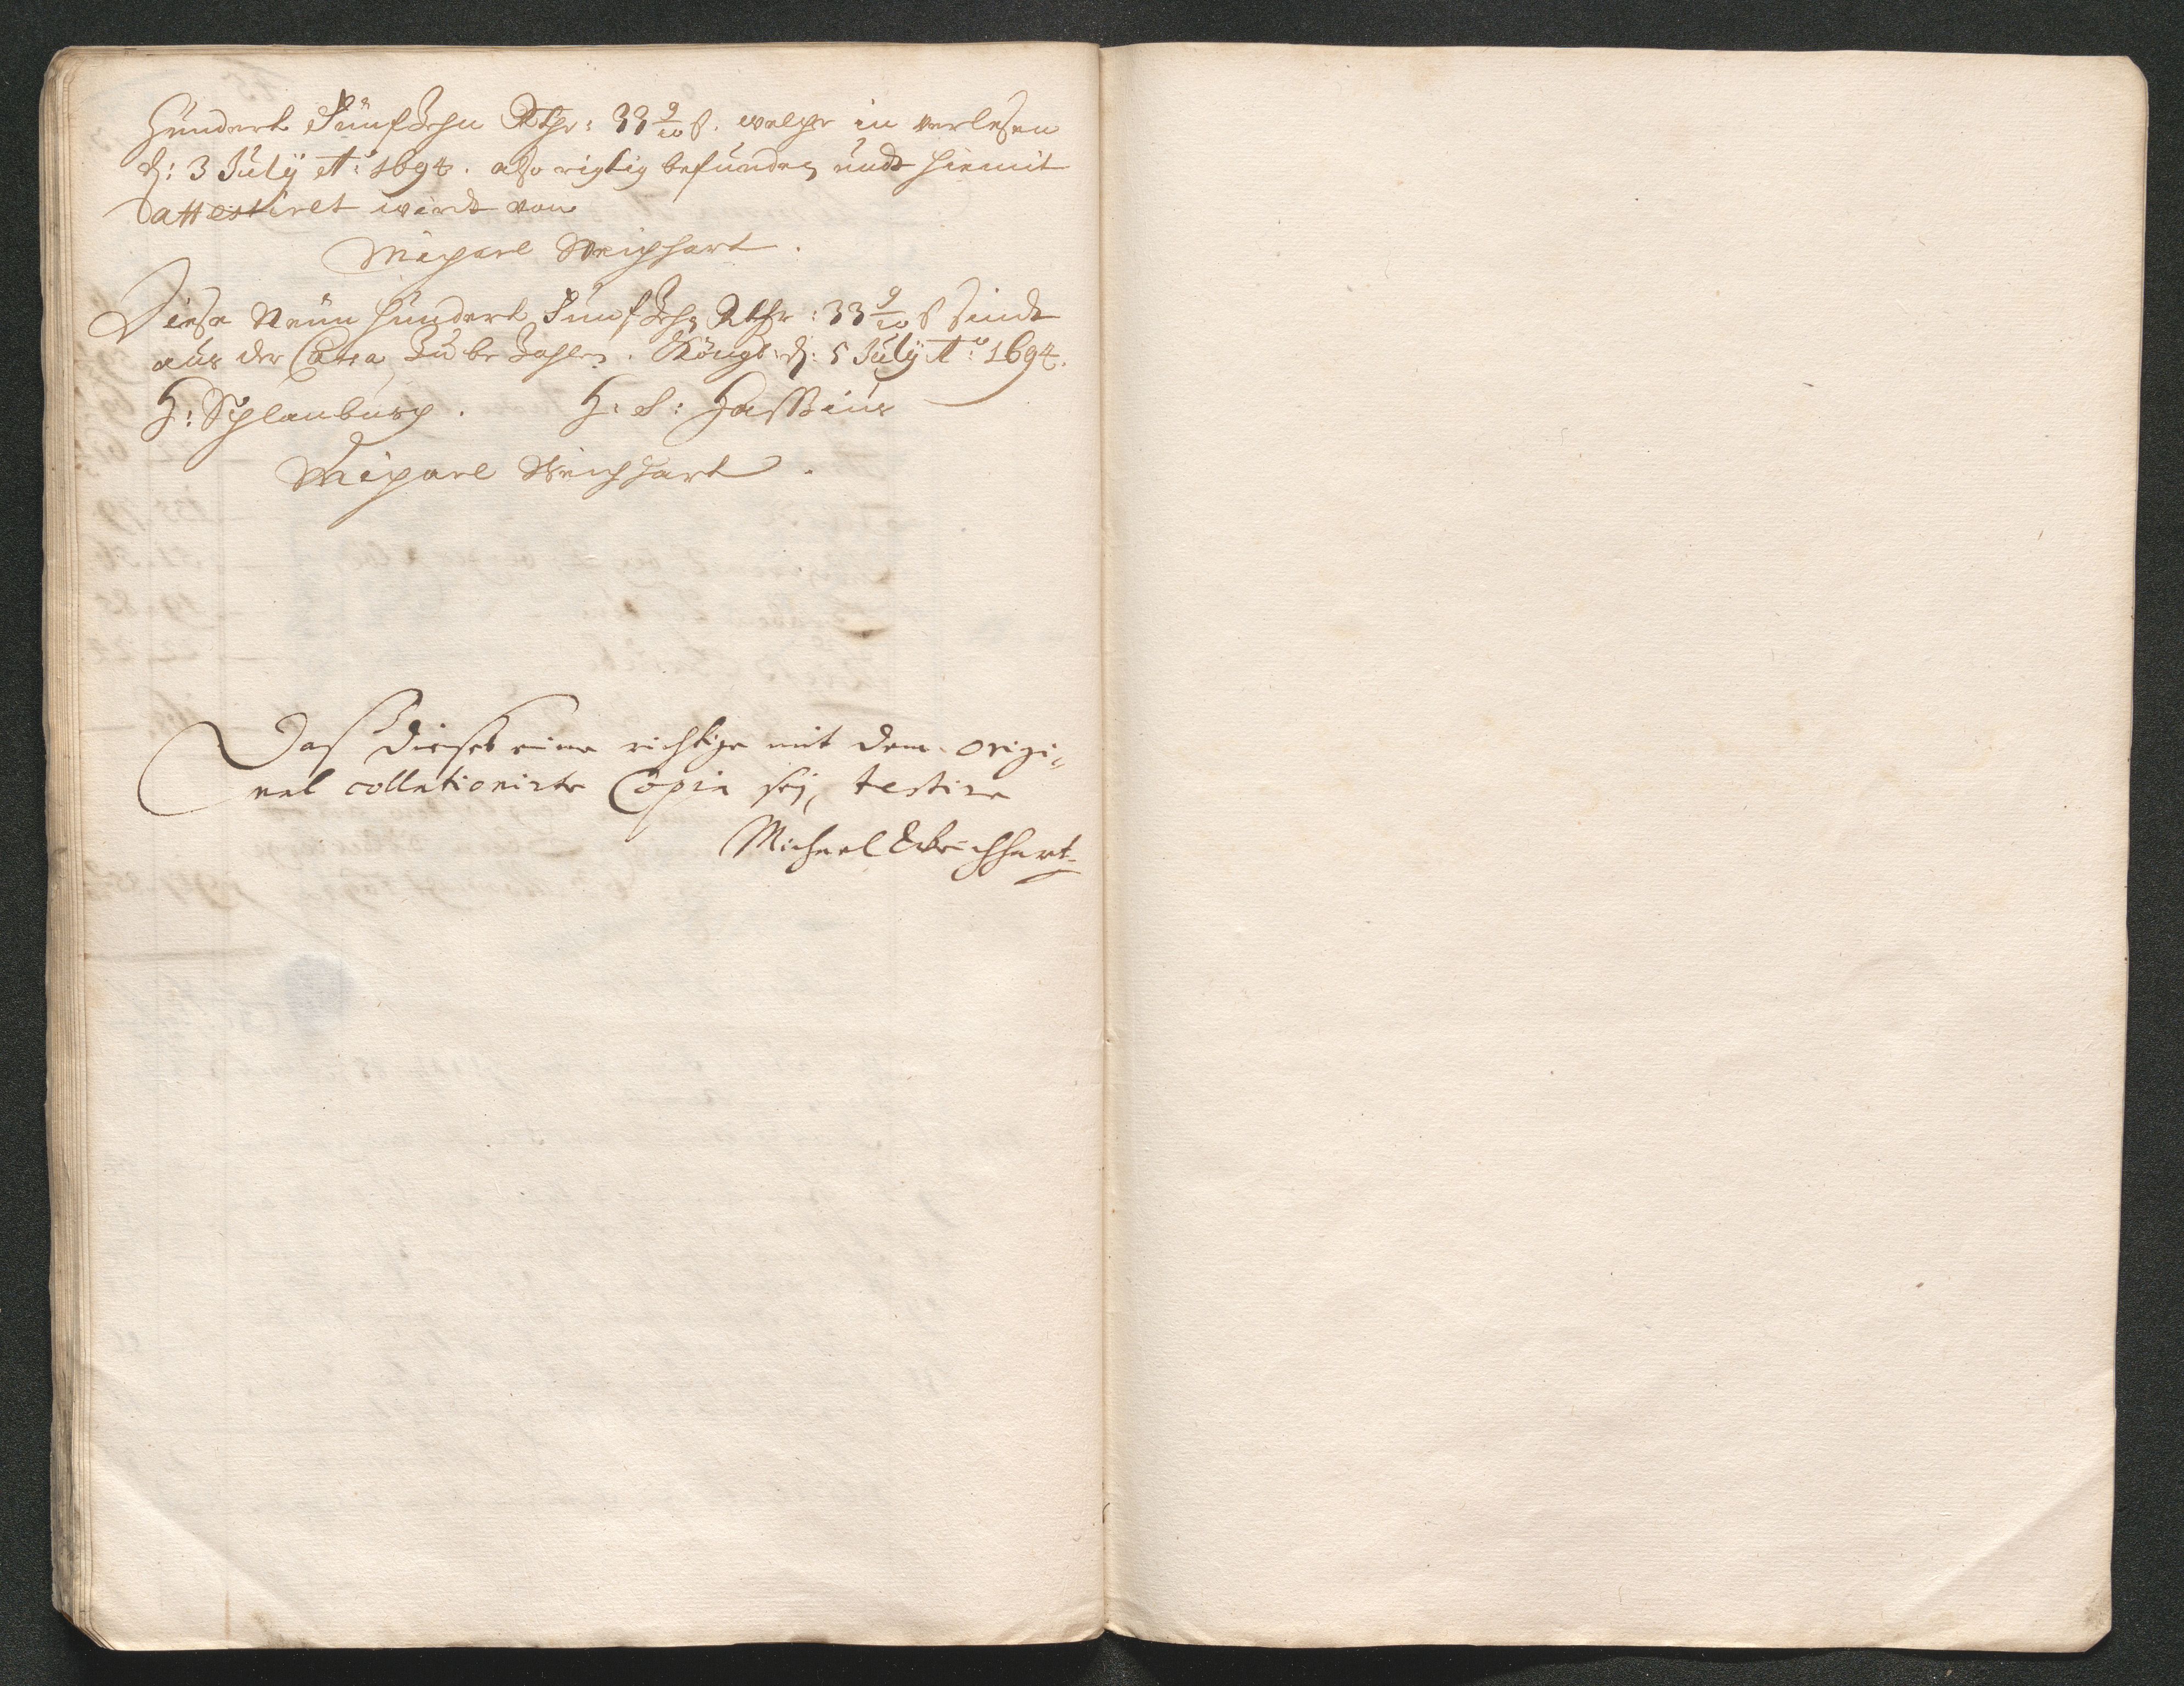 Hundert Fünfzehn Rthr: 33 9/10 ß. welche in verlesen
d: 3 July Aō: 1694. also richtig befunden undt hiemit
attestiret wirdt von
Michael Weichhart.
Diese Neun Hundert Fünfzehn Rthr: 33 9/10 ß sindt
aus der Casza zu bezahlen. d: 5 July Aō: 1694.
H: Schlanbusch. H: S: Hassius
Michael Weichhart.
Daß dieses eine richtige mit dem origi„
nal collationirte Copia sej, testire
Michael Weichhart